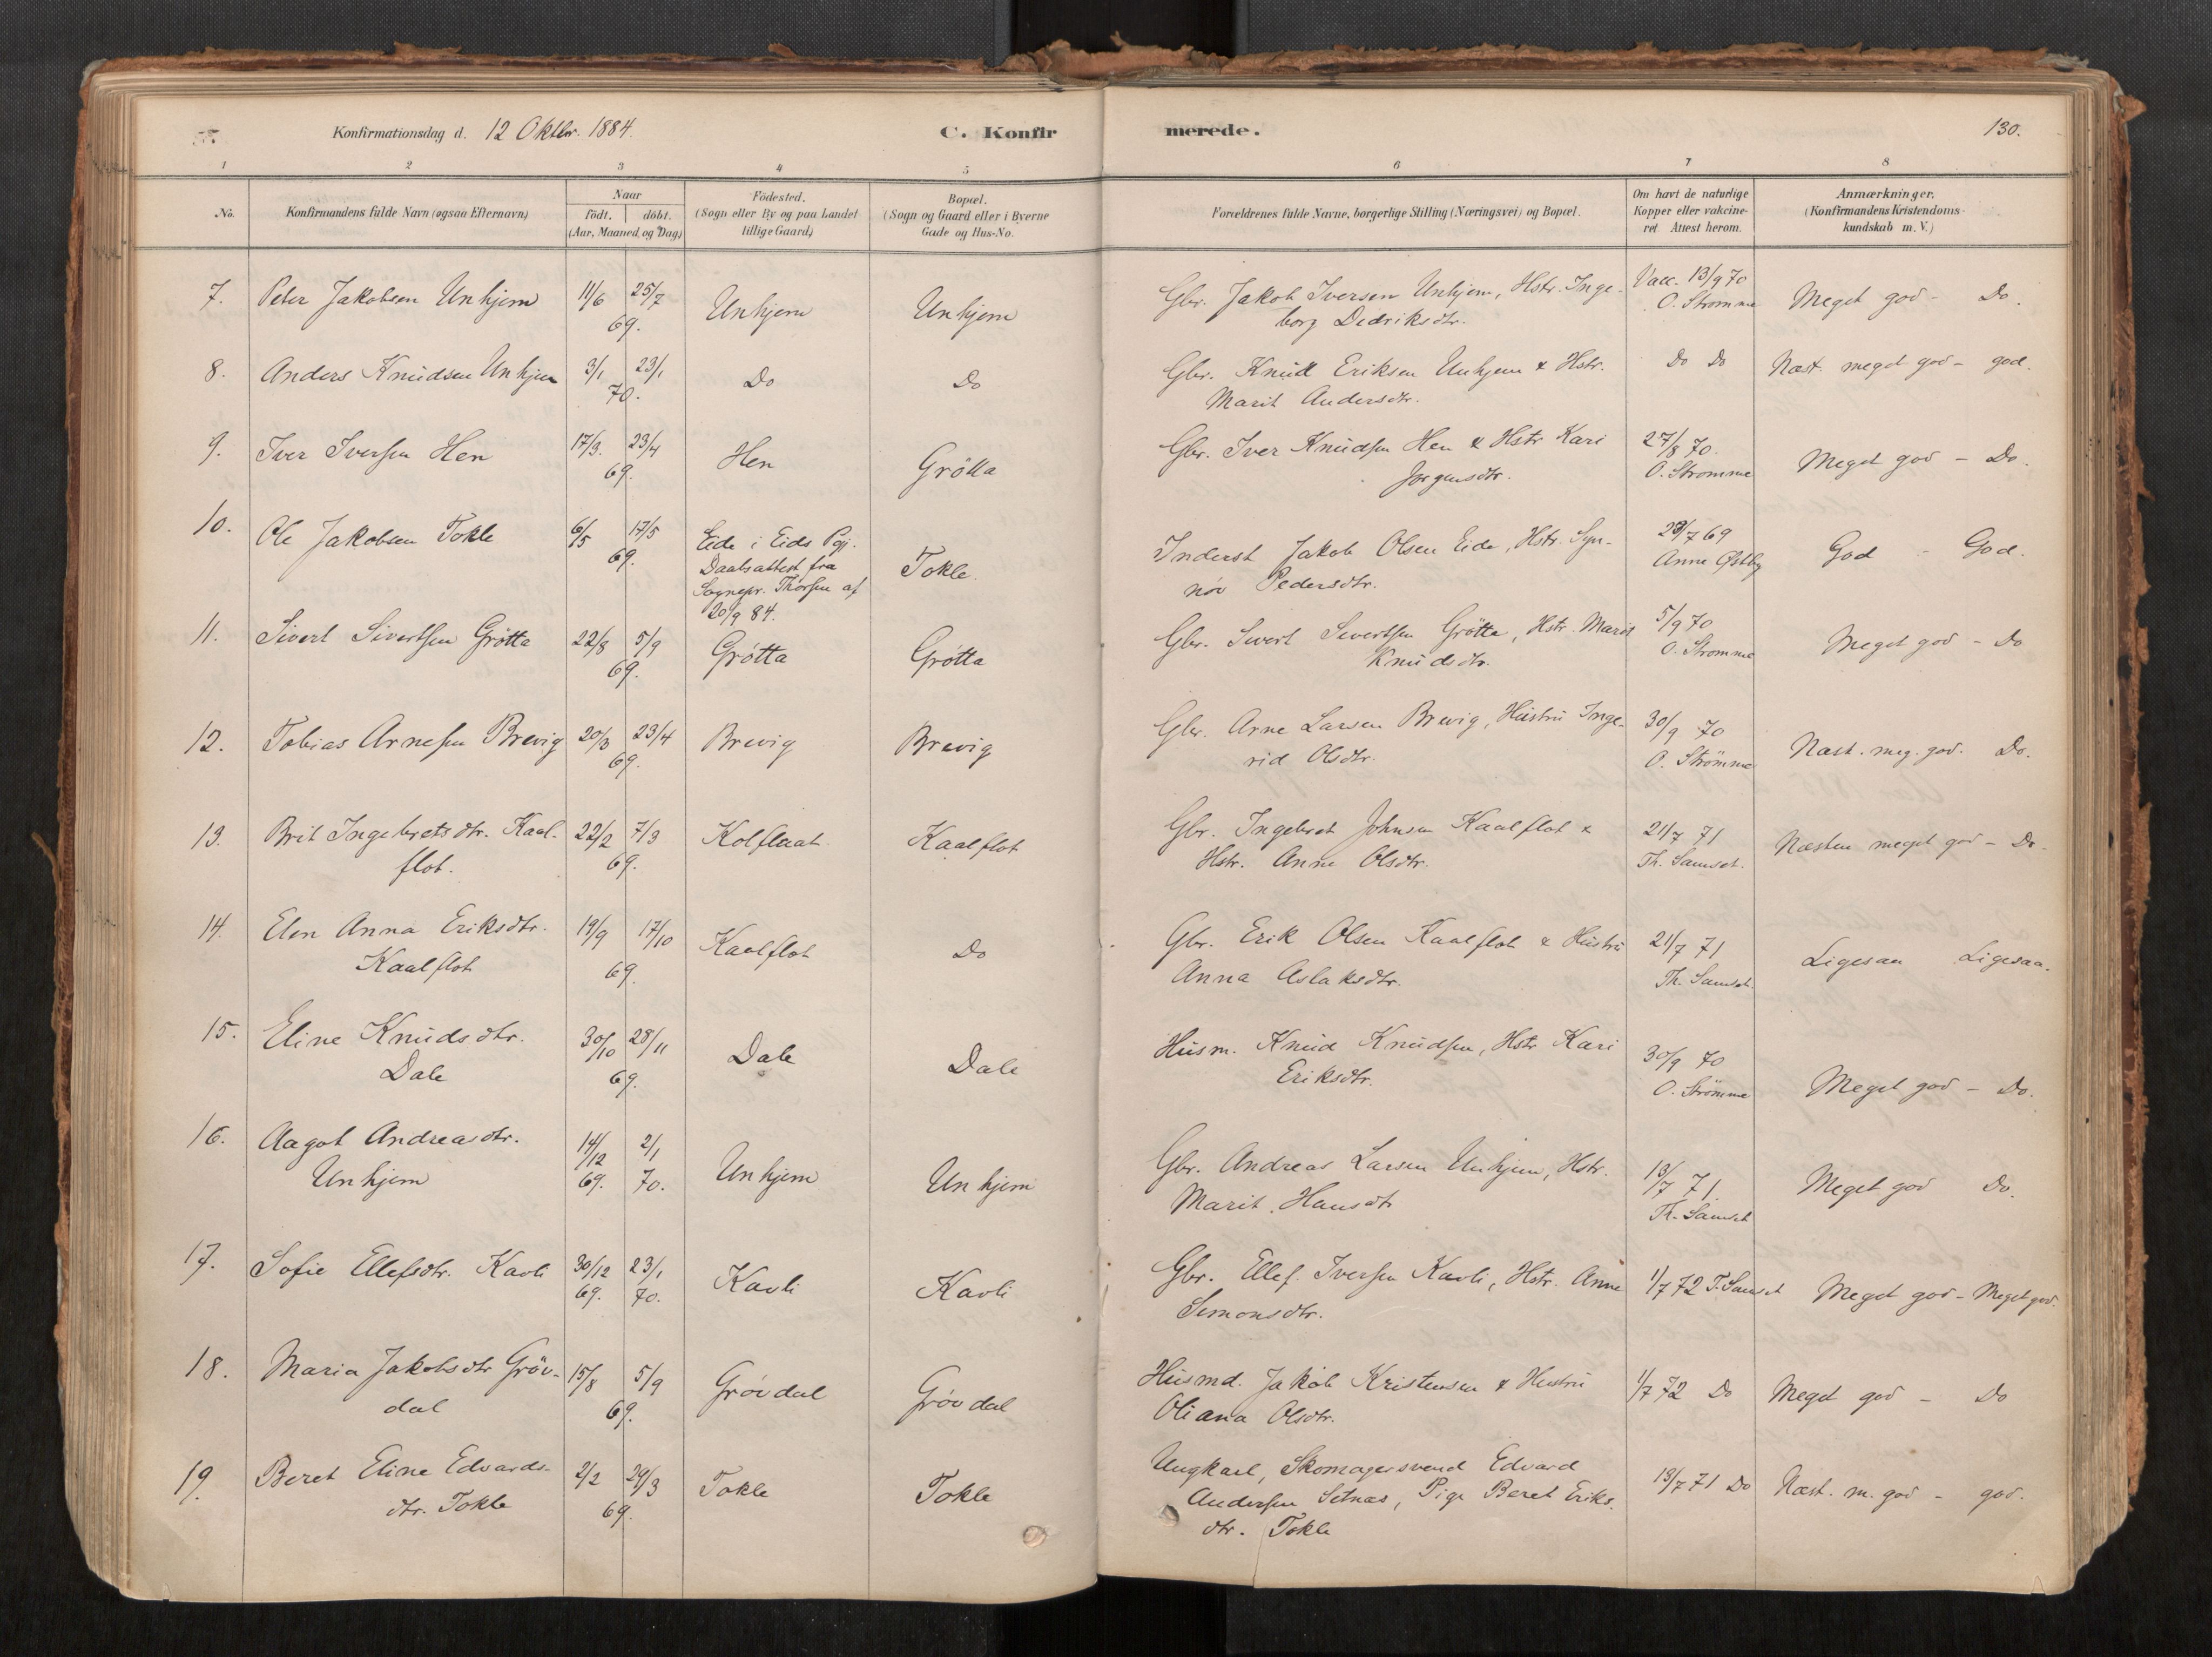 Konfirmationsdag d. 12 Oktbr. 1884. C. Konfirmerede. 130.
1 2 3 4 5 6 7 8
No. Konfirmandens fulde Navn (ogsaa Efternavn) Naar født. døbt. (Aar, Maaned og Dag) Födested. (Sogn eller By og paa Landet tillige Gaard) Bopæl. (Sogn og Gaard eller i Byerne Gade og Hus-No. Forældrenes fulde Navne, borgerlige Stilling (Næringsvei) og Bopæl. Om havt de naturlige Kopper eller vakcineret Attest herom. Anmærkninger. (Konfirmandens Kristendomskundskab m. V.)
7. Peter Jakobsen Unhjem 11/6 25/7 Unhjem Unhjem Gbr. Jakob Iversen Unhjem, Hstr. Inge- Vacc. 13/9 70 Meget god - Do.
69. borg Dedriksdtr. O. Strømme
8. Anders Knudsen Unhjem 3/1 23/1 Do Do Gbr. Knud Eriksen Unhjem & Hstr. Do Do Næst. meget god - god.
70. Marit Andersdtr.
9. Iver Iversen Hen 17/3. 23/4 Hen Grøtta Gbr. Iver Knudsen Hen & Hstr Kari 27/8 70. Meget god - Do.
69. Jørgensdtr. O. Strømme
10. Ole Jakobsen Tokle 6/5 17/5 Eide i Eids Pgj. Tokle. Inderst Jakob Olsen Eide, Hstr. Syn- 29/7 69 God - God.
69. Daabsattest fra nøv Pedersdtr. Anne Østby
Sognepr. Thorsen af
20/9 84.
11. Sivert Sivertsen Grøtta 22/8 5/9 Grøtta Grøtta Gbr. Sivert Sivertsen Grøtta, Hstr. Marit 5/9 70 Meget god - Do
69. Knudsdtr. O. Strømme
12. Tobias Arnesen Brevig 20/3 23/4 Brevig Brevig Gbr. Arne Larsen Brevig, Hustru Inge- 30/9 70 Næst. meg. god. Do.
69. rid Olsdtr. O. Strømme
13. Brit Ingebretsdtr. Kaal- 22/2 7/3 Kolflaat Kaalflot Gbr. Ingebret Johnsen Kaalflot & 21/7 71 Næsten meget god - Do.
flot. 69. Hstr. Anne Olsdtr. Th. Samset.
14. Elen Anna Eriksdtr. 19/9 17/10 Kaalflot Do Gbr. Erik Olsen Kaalflot & Hustru 21/7 71 Ligesaa Ligesaa.
Kaalflot 69. Anna Aslaksdtr. Th. Samset.
15. Eline Knudsdtr. 30/10 28/11 Dale Dale Husm. Knud Knudsen, Hstr Kari 30/9 70 Meget god - Do.
Dale 69. Eriksdtr. O. Strømme
16. Aagot Andreasdtr. 14/12 2/1 Unhjem Unhjem Gbr. Andreas Larsen Unhjem, Hstr. 13/7 71. Meget god Do.
Unhjem 69. 70. Marit Hansdtr Th. Samset
17. Sofie Ellefsdtr. Kavli 30/12 23/1 Kavli Kavli Gbr. Ellef Iversen Kavli, Hstr. Anne 1/7 72 T. Samset Meget god - Meget god.
69. 70. Simonsdtr.
18. Maria Jakobsdtr Grøv- 15/8 5/9 Grøvdal Grøvdal Husmd. Jakob Kristensen & Hustru 1/7 72 Do Meget god - Do
dal 69. Oliana Olsdtr.
19. Beret Eline Edvards- 2/2 29/3 Tokle Tokle Ungkarl, Skomagersvend Edvard 13/7 71 Do Næst. m. god - god.
dtr. Tokle 69. Andersen Setnæs, Pige Beret Eriks-
dtr. Tokle